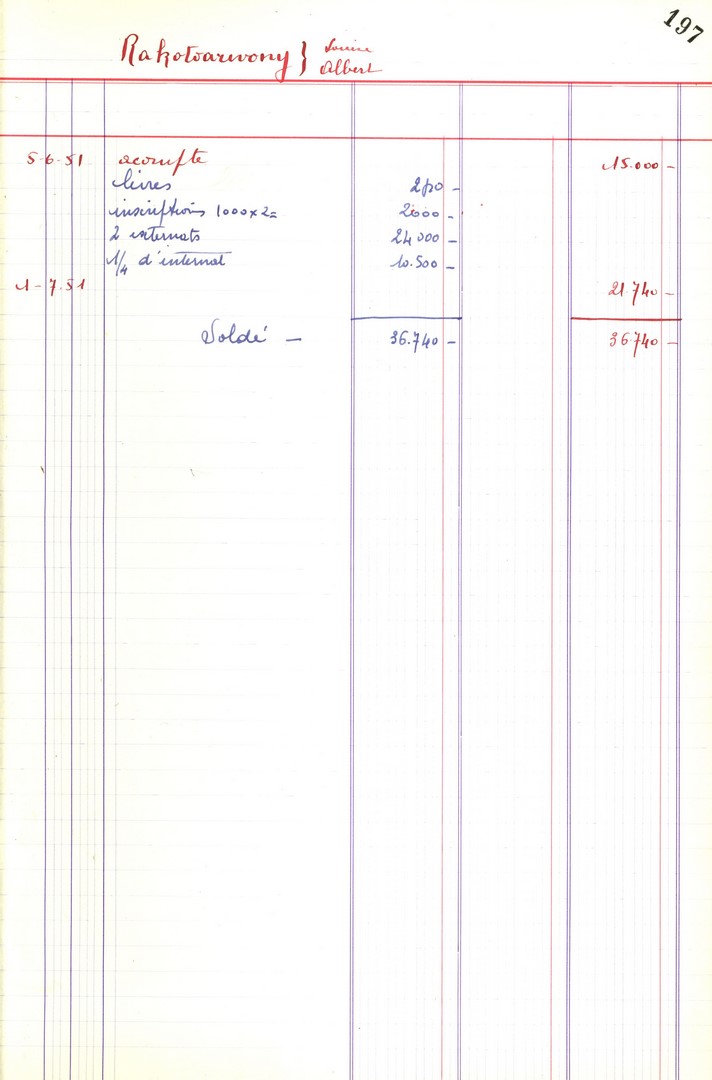 197
Rakotoarivony } Louise
Albert
5-6-51 acompte 15.000 -
livres 240 -
inscriptions 1000 x 2 = 2000 -
2 internats 24 000 -
1/4 d'internat 10.500 -
1-7.51 21.740 -
Soldé - 36.740 - 36.740 -